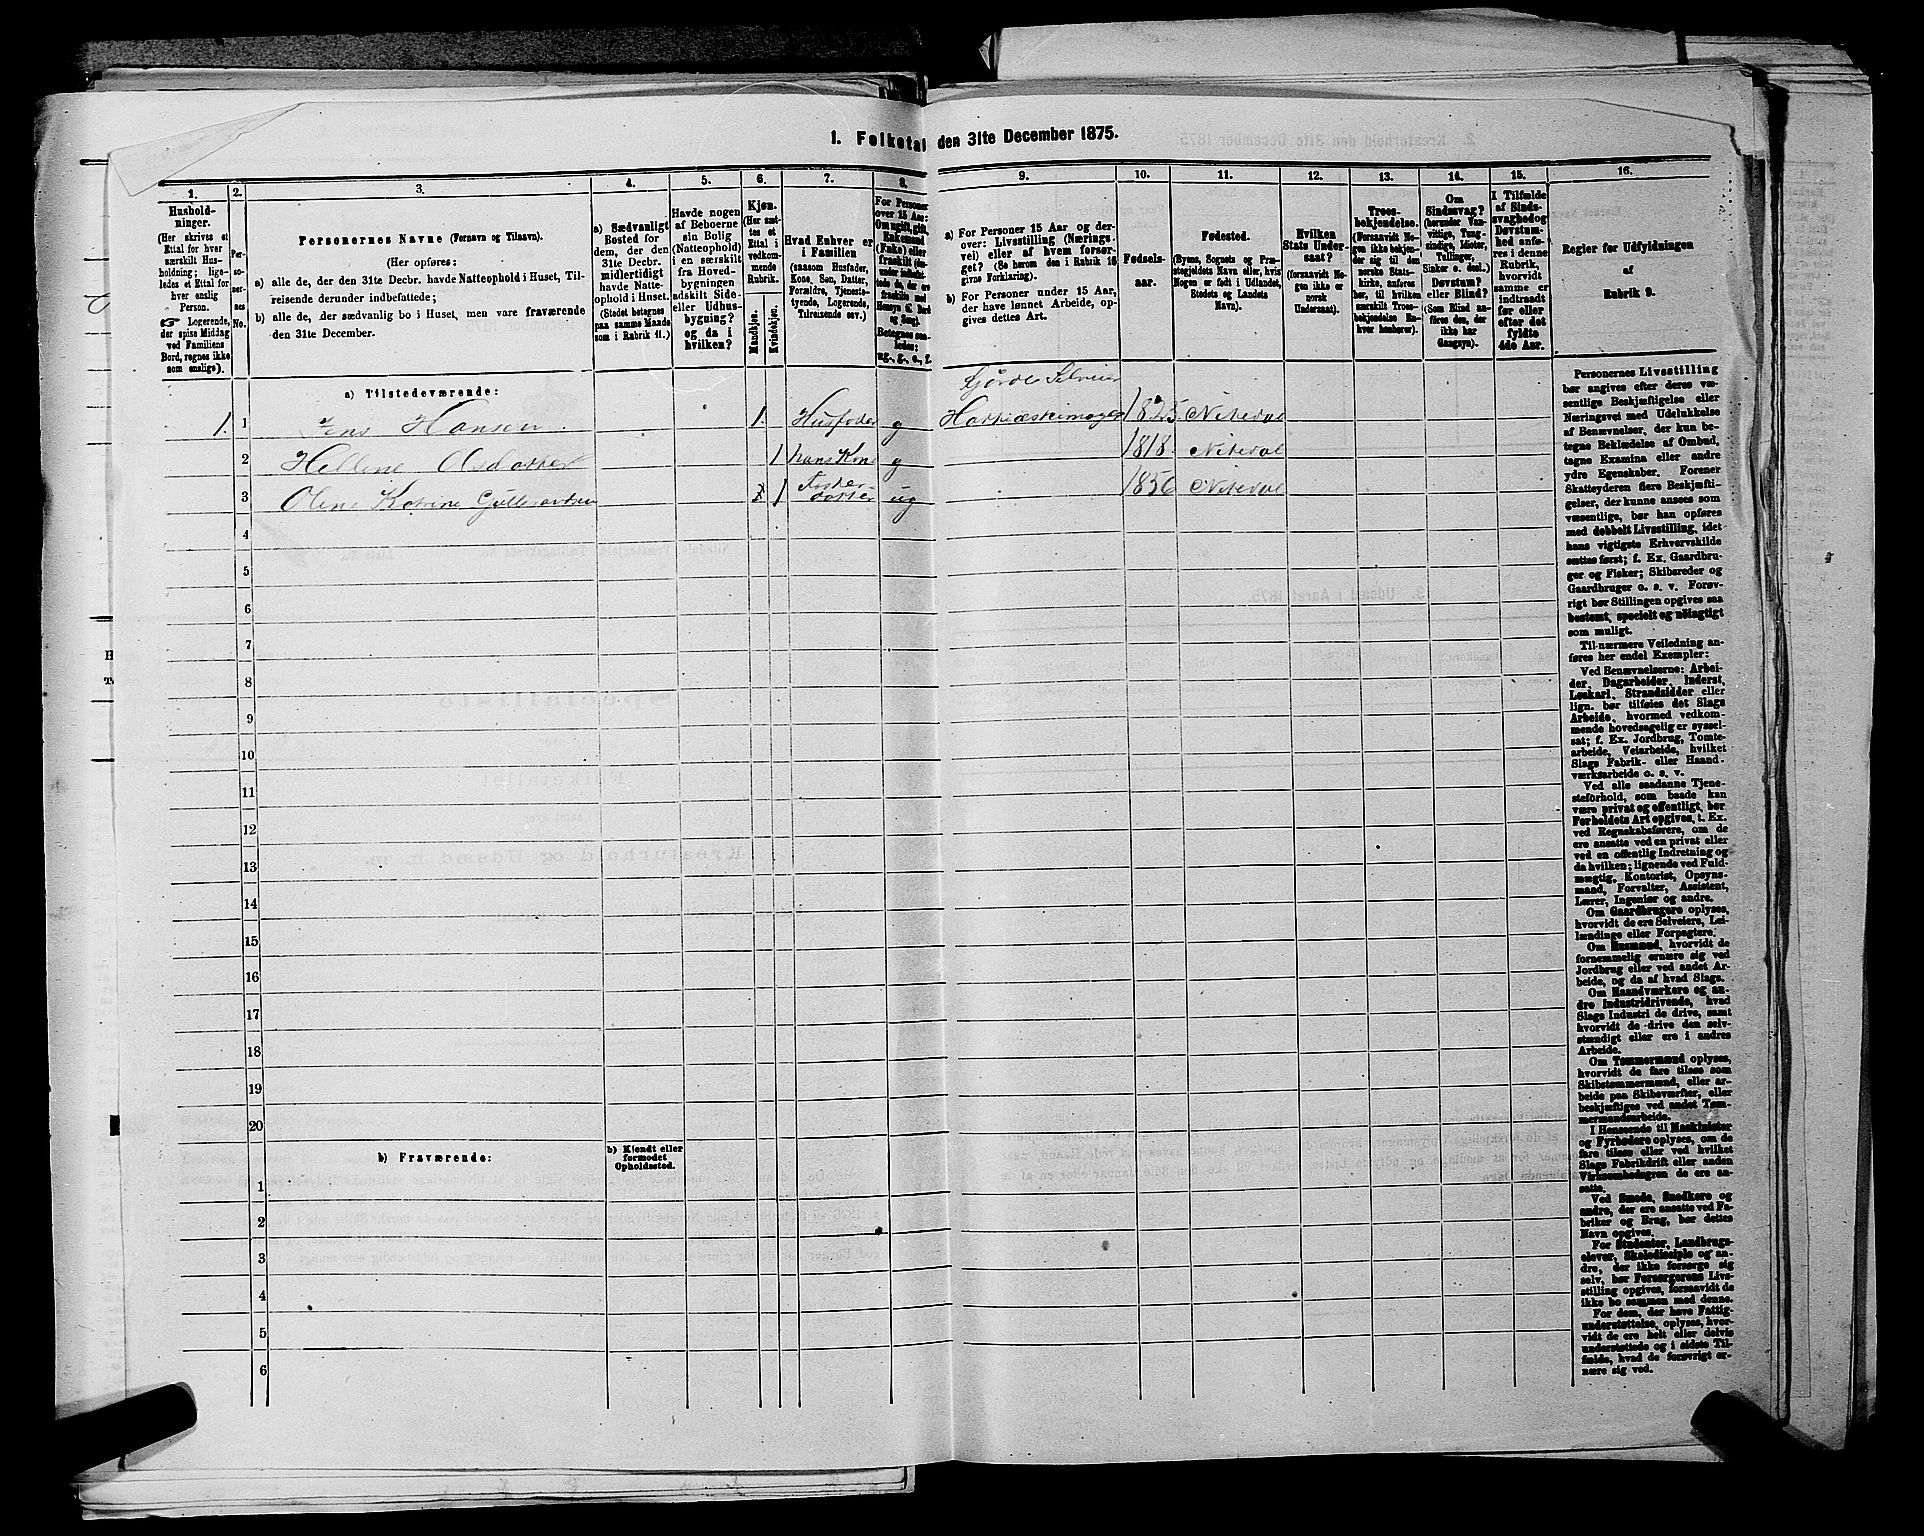 1. Folketal den 31te December 1875.
1. 2. 3. 4. 5. 6. 7. 8. 9. 10. 11. 12. 13. 14. 15. 16.
Hushold-
ninger.
(Her skrives et
Ettal for hver
særskilt Hus-
holdning; lige-
ledes et Ettal for
hver enslig
Person.
☞ Logerende,
der spise Middag
ved Familiens
Bord, regnes ikke
som enslige).
Per-
so-
ner-
nes
No.
Personernes Navne (Fornavn og Tilnavn).
(Her opføres:
a) alle de, der den 31te Decbr. havde Natteophold i Huset, Til-
reisende derunder indbefattede;
b) alle de, der sædvanlig bo i Huset, men vare fraværende
den 31te December.
a) Sædvanligt
Bosted for
dem, der den
31te Decbr.
midlertidigt
havde Natte-
ophold i Huset.
(Stedet betegnes
paa samme Maade
som i Rubrik 11.)
Havde nogen
af Beboerne
sin Bolig
(Natteophold)
i en særskilt
fra Hoved-
bygningen
adskilt Side-
eller Udhus-
bygning?
og da i
hvilken?
Kjøn.
(Her sæt-
tes et
Ettal i
vedkom-
mende
Rubrik.
Mandkjøn.
Kvindekjøn.
Hvad Enhver er
i Familien
(saasom Husfader,
Kone, Søn, Datter,
Forældre, Tjeneste-
tyende, Logerende,
Tilreisende osv.)
For Personer
over 15 Aar:
Om ugift, gift,
Enkemand
(Enke) eller
fraskilt
Betegnes saa-
ledes:
ug., g., e., f.
a) For Personer 15 Aar og der-
over: Livsstilling (Nærings-
vei) eller af hvem forsør-
get? (Se herom den i Rubrik 16
givne Forklaring).
b) For Personer under 15 Aar,
der have lønnet Arbeide, op-
gives dettes Art.
Fødsels-
aar.
Fødested.
(Byens, Sognets og Præ-
stegjeldets Navn eller, hvis
Nogen er født i Udlandet,
Stedets og Landets
Navn).
Hvilken
Stats Under-
saat?
(forsaavidt No-
gen ikke er
norsk
Undersaat).
Troes-
bekjendelse.
(Forsaavidt No-
gen ikke bekjen-
der sig til den
norske Stats-
kirke, anføres
her, til hvilken
særskilt Troes-
bekjendelse En-
hver henhører).
Om
Sindssvag?
(herunder Van-
vittige, Tung-
sindige, Idioter,
Tullinger,
Sinker o. desl.)
Døvstum?
eller Blind?
(Som Blind an-
føres den, der
ikke har
Gangsyn).
I Tilfælde
af Sinds-
svaghed og
Døvstum-
hed anfø-
res i denne
Rubrik,
hvorvidt
samme er
indtraadt
før eller
efter det
fyldte
4de Aar.
Regler for Udfyldningen
af
Rubrik 9.
a) Tilstedeværende:
Gjörde Selveier
1. 1 Jens Hansen 1. Husfader g 1825. Nitedal
2 Hellene Olsdatter 1 hans Kone g 1818. Nitedal
3 Olene Katrine 1 datter ug 1856 Nitedal
4
5
6
7
8
9
10
11
12
13
14
15
16
17
18
19
20
b) Fraværende:
b) Kjendt eller
formodet
Opholdssted.
1
2
3
4
5
6
Personernes Livsstilling
bør angives efter deres væ-
sentlige Beskjæftigelse eller
Næringsvei med Udelukkelse
af Benævnelser, der kun be-
tegne Beklædelse af Ombud,
tagne Examina eller andre
ydre Egenskaber. Forener
Skatteyderen flere Beskjæfti-
gelser, der kunne ansees som
væsentlige, bør han opføres
med dobbelt Livsstilling, idet
hans vigtigste Erhvervskilde
sættes først; f. Ex. Gaardbru-
ger og Fisker; Skibsreder og
Gaardbruger o. s. v. Forøv-
rigt bør Stillingen opgives saa
bestemt, specielt og nøiagtigt
som muligt.
Til nærmere Veiledning an-
føres her endel Exempler:
Ved Benævnelserne: Arbei-
der, Dagarbeider, Inderst,
Løskarl, Strandsidder eller
lign. bør tilføies det Slags
Arbeide, hvormed vedkom-
mende hovedsagelig er syssel-
sat; f. Ex. Jordbrug, Tomte-
arbeide, Veiarbeide, hvilket
Slags Fabrik- eller Haand-
værksarbeide o. s. v.
Ved alle saadanne Tjene-
steforhold, som baade kan
være privat og offentligt, bør
Forholdets Art opgives, t. Ex.
ved Regnskabsførere, om de
ere ansatte ved en privat eller
ved en offentlig Indretning og
da hvilken; lignende ved Fuld-
mægtig, Kontorist, Opsyns-
mand, Forvalter, Assistent,
Lærer, Ingeniør og andre.
Om Gaardbrugere oplyses,
hvorvidt de ere Selveiere, Lei-
lændinge eller Forpagtere.
Om Husmænd, hvorvidt de
fornemmelig ernære sig ved
Jordbrug eller ved andet Ar-
beide, og da af hvad Slags.
Om Haandværkere og an-
dre Industridrivende, hvad
Slags Industri de drive, samt
hvorvidt de drive den selv-
stændigt eller ere i andres
Arbeide.
Om Tømmermænd oplyses,
hvorvidt de fare tilsøs som
Skibstømmermænd, eller ar-
beide paa Skibsværfter, eller
beskjæftiges ved andet Tøm-
mermandsarbeide.
I Henseende til Maskinister
og Fyrbødere oplyses, om de
fare tilsøs eller ved hvilket
Slags Fabrikdrift eller anden
Virksomhedsgren de ere an-
satte.
Ved Smede, Snedkere og
andre, der ere ansatte ved Fa-
briker og Brug, bør dettes
Navn opgives.
For Studenter, Landbrugs-
elever, Skoledisciple og an-
dre, der ikke forsørge sig
selv, bør Forsørgerens Livs-
stilling opgives, forsaavidt de
ikke bo sammen med denne.
For dem, der have Fattig-
understøttelse, oplyses, hvor-
vidt de ere helt eller delvis
understøttede og i sidste Til-
fælde, hvad de forøvrigt er-
nære sig ved.